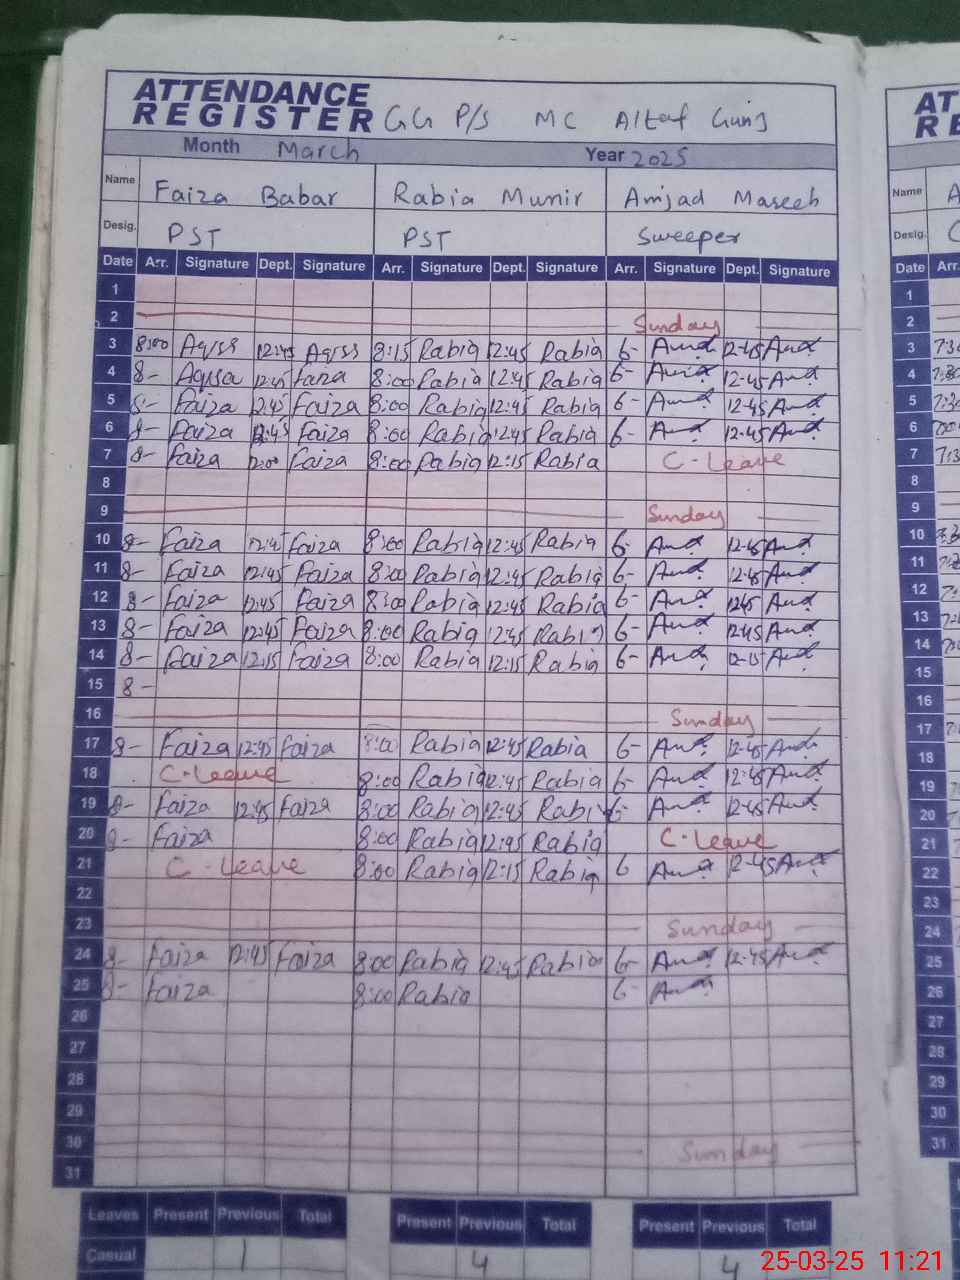 ATTENDANCE
REGISTER GG P/S MC Altaf Gunj
Month March Year 2025
Name Faiza Babar Rabia Munir Amjad Maseeh
Desig. PST PST Sweeper
Date Arr. Signature Dept. Signature Arr. Signature Dept. Signature Arr. Signature Dept. Signature
1
2 Sunday
3 8:00 12:45 8:15 Rabia 12:45 Rabia 6- 12-45
4 8- 12:45 Faiza 8:00 Rabia 12:45 Rabia 6- 12-45
5 8- Faiza 12:45 Faiza 8:00 Rabia 12:45 Rabia 6- 12-45
6 8- Faiza 12:45 Faiza 8:00 Rabia 12:45 Rabia 6- 12-45
7 8- Faiza 12:00 Faiza 8:00 Rabia 12:15 Rabia C-Leave
8
9 Sunday
10 8- Faiza 12:45 Faiza 8:00 Rabia 12:45 Rabia 6- 12-45
11 8- Faiza 12:45 Faiza 8:00 Rabia 12:45 Rabia 6- 12-45
12 8- Faiza 12:45 Faiza 8:00 Rabia 12:45 Rabia 6- 12-45
13 8- Faiza 12:45 Faiza 8:00 Rabia 12:45 Rabia 6- 12-45
14 8- Faiza 12:15 Faiza 8:00 Rabia 12:15 Rabia 6- 12-15
15 8-
16 Sunday
17 8- Faiza 12:45 Faiza 8:00 Rabia 12:45 Rabia 6- 12-45
18 C-Leave 8:00 Rabia 12:45 Rabia 6- 12-45
19 8- Faiza 12:45 Faiza 8:00 Rabia 12:45 Rabia 6- 12-45
20 8- Faiza 8:00 Rabia 12:45 Rabia C-Leave
21 C-Leave 8:00 Rabia 12:15 Rabia 6 12-45
22
23 Sunday
24 8- Faiza 12:45 Faiza 8:00 Rabia 12:45 Rabia 6- 12-45
25 8- Faiza 8:00 Rabia 6-
26
27
28
29
30 Sunday
31
Leaves Present Previous Total Present Previous Total Present Previous Total
Casual 1 4 4
Name
Desig.
Date Arr.
1
2
3
4
5
6
7
8
9
10
11
12
13
14
15
16
17
18
19
20
21
22
23
24
25
26
27
28
29
30
31
25-03-25 11:21